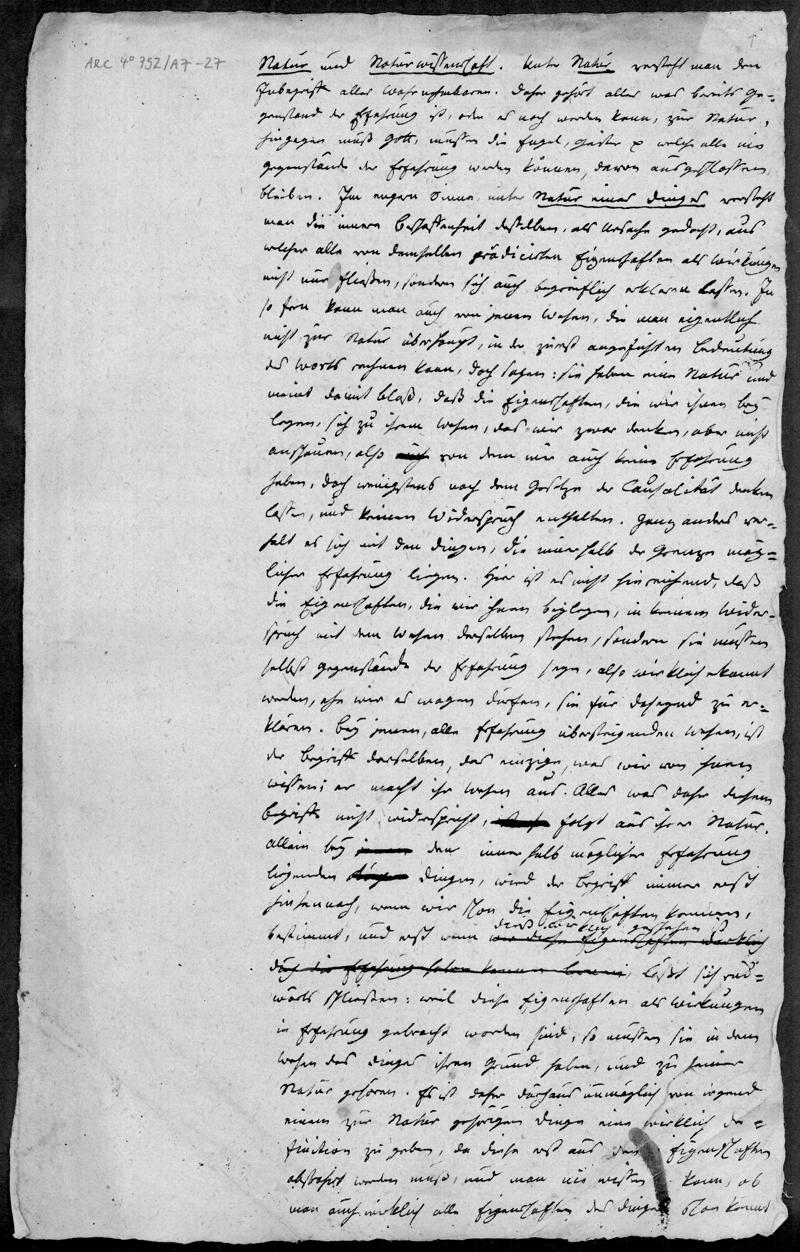 ARC 4° 792/A7-27
Natur und Naturwissenschaft. Unter Natur versteht man den
Inbegriff alles Wahrnehmbaren. Daher gehört alles was bereits Ge=
genstand der Erfahrung ist, oder es noch werden kann, zur Natur,
hingegen muß Gott, müssen die Engel, Geister welche alle nie
Gegenstände der Erfahrung werden können, davon ausgeschlossen
bleiben. Im engern Sinne, unter Natur eines Dinges versteht
man die innere Beschaffenheit desselben, als Ursache gedacht, aus
welcher alle von demselben prädicirten Eigenschaften als Wirkungen
nicht nur fließen, sondern sich auch begreiflich erklären lassen. In
so fern kann man auch von jenen Wesen, die man eigentlich
nicht zur Natur überhaupt, in der zuerst angeführten Bedeutung
des Worts rechnen kann, doch sagen: sie haben eine Natur und
meint damit bloß, daß die Eigenschaften, die wir ihnen bey
legen, sich zu ihrem Wesen, das wir zwar denken, aber nicht
anschauen, also von dem wir auch keine Erfahrung
haben, doch wenigstens nach dem Gesetze der Causalität denken
lassen, und keinen Widerspruch enthalten. Ganz anders ver=
hält es sich mit den Dingen, die innerhalb der Grenze mög=
licher Erfahrung liegen. Hier ist es nicht hinreichend, daß
die Eigenschaften, die wir ihnen beylegen, in keinem Wider=
spruch mit dem Wesen derselben stehen, sondern sie müssen
selbst Gegenstände der Erfahrung seyn, also wirklich erkannt
werden, ehe wir es wagen dürfen, sie für daseyend zu er=
klären. Bey jenen, alle Erfahrung übersteigenden Wesen, ist
der Begriff derselben, das einzige, was wir von ihnen
wissen; er macht ihr Wesen aus. Alles was daher diesem
Begriff nicht widerspricht, folgt aus ihrer Natur.
Allein bey den innerhalb möglicher Erfahrung
liegenden Dingen, wird der Begriff immer erst
hintennach, wenn wir schon die Eigenschaften kennen,
bestimmt, und erst wenn dieß wirklich geschehen ist
wir diese Eigenschaften wirklich
durch die Erfahrung haben kennen lernen, läßt sich rük=
wärts schließen: weil diese Eigenschaften als Wirkungen
in Erfahrung gebracht worden sind, so müssen sie in dem
Wesen des Dinges ihren Grund haben, und zu seiner
Natur gehören. Es ist daher durchaus unmöglich von irgend
einem zur Natur gehörigen Dinge eine wirklich De=
finition zu geben, da diese erst aus den Eigenschaften
abstrahirt werden muß, und man nie wissen kann, ob
man auch wirklich alle Eigenschaften des Dinges schon kennt